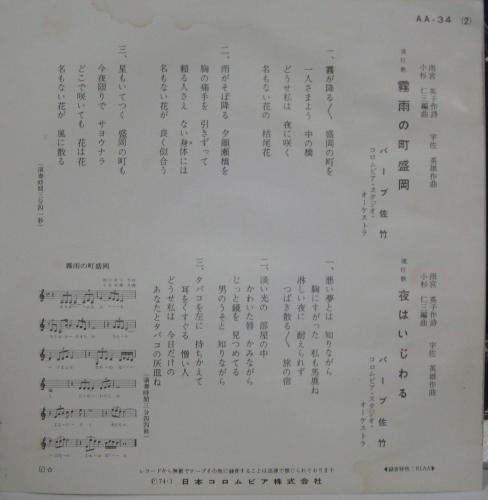 AA-34 (2)
雨宮 英子作詩 宇佐 英雄作曲
小杉 仁三編曲
流行歌 霧雨の町盛岡
バーブ佐竹
コロムビア・スタジオ・
オーケストラ
一、霧が降る〳〵 盛岡の町を
一人さまよう 中の橋
どうせ私は 夜に咲く
名もない花の 枯尾花
二、雨がそぼ降る 夕顔瀬橋を
胸の痛手を 引きずって
頼る人さえ ない身体には
名もない花が 良く似合う
三、星もいてつく 盛岡の町も
今夜限りで サヨウナラ
どこで咲いても 花は花
名もない花が 風に散る
(演奏時間三分四一秒)
雨宮 英子作詩 宇佐 英雄作曲
小杉 仁三編曲
流行歌 夜はいじわる
バーブ佐竹
コロムビア・スタジオ・
オーケストラ
一、悪い夢とは 知りながら
胸にすがった 私も馬鹿ね
淋しい夜に 耐えられず
つばき散る〳〵 旅の宿
二、淡い光の 部屋の中
かわいた唇 かみながら
じっと鏡を 見つめてる
男のうそと 知りながら
三、タバコを左に 持ちかえて
耳をくすぐる 憎い人
どうせ私は 今日だけの
あなたとタバコの 灰皿ね
(演奏時間三分四四秒)
霧雨の町盛岡
レコードから無断でテープその他に録音することは法律で禁じられております
Ⓟ74・3 日本コロムビア株式会社
◀録音特性:RIAA▶